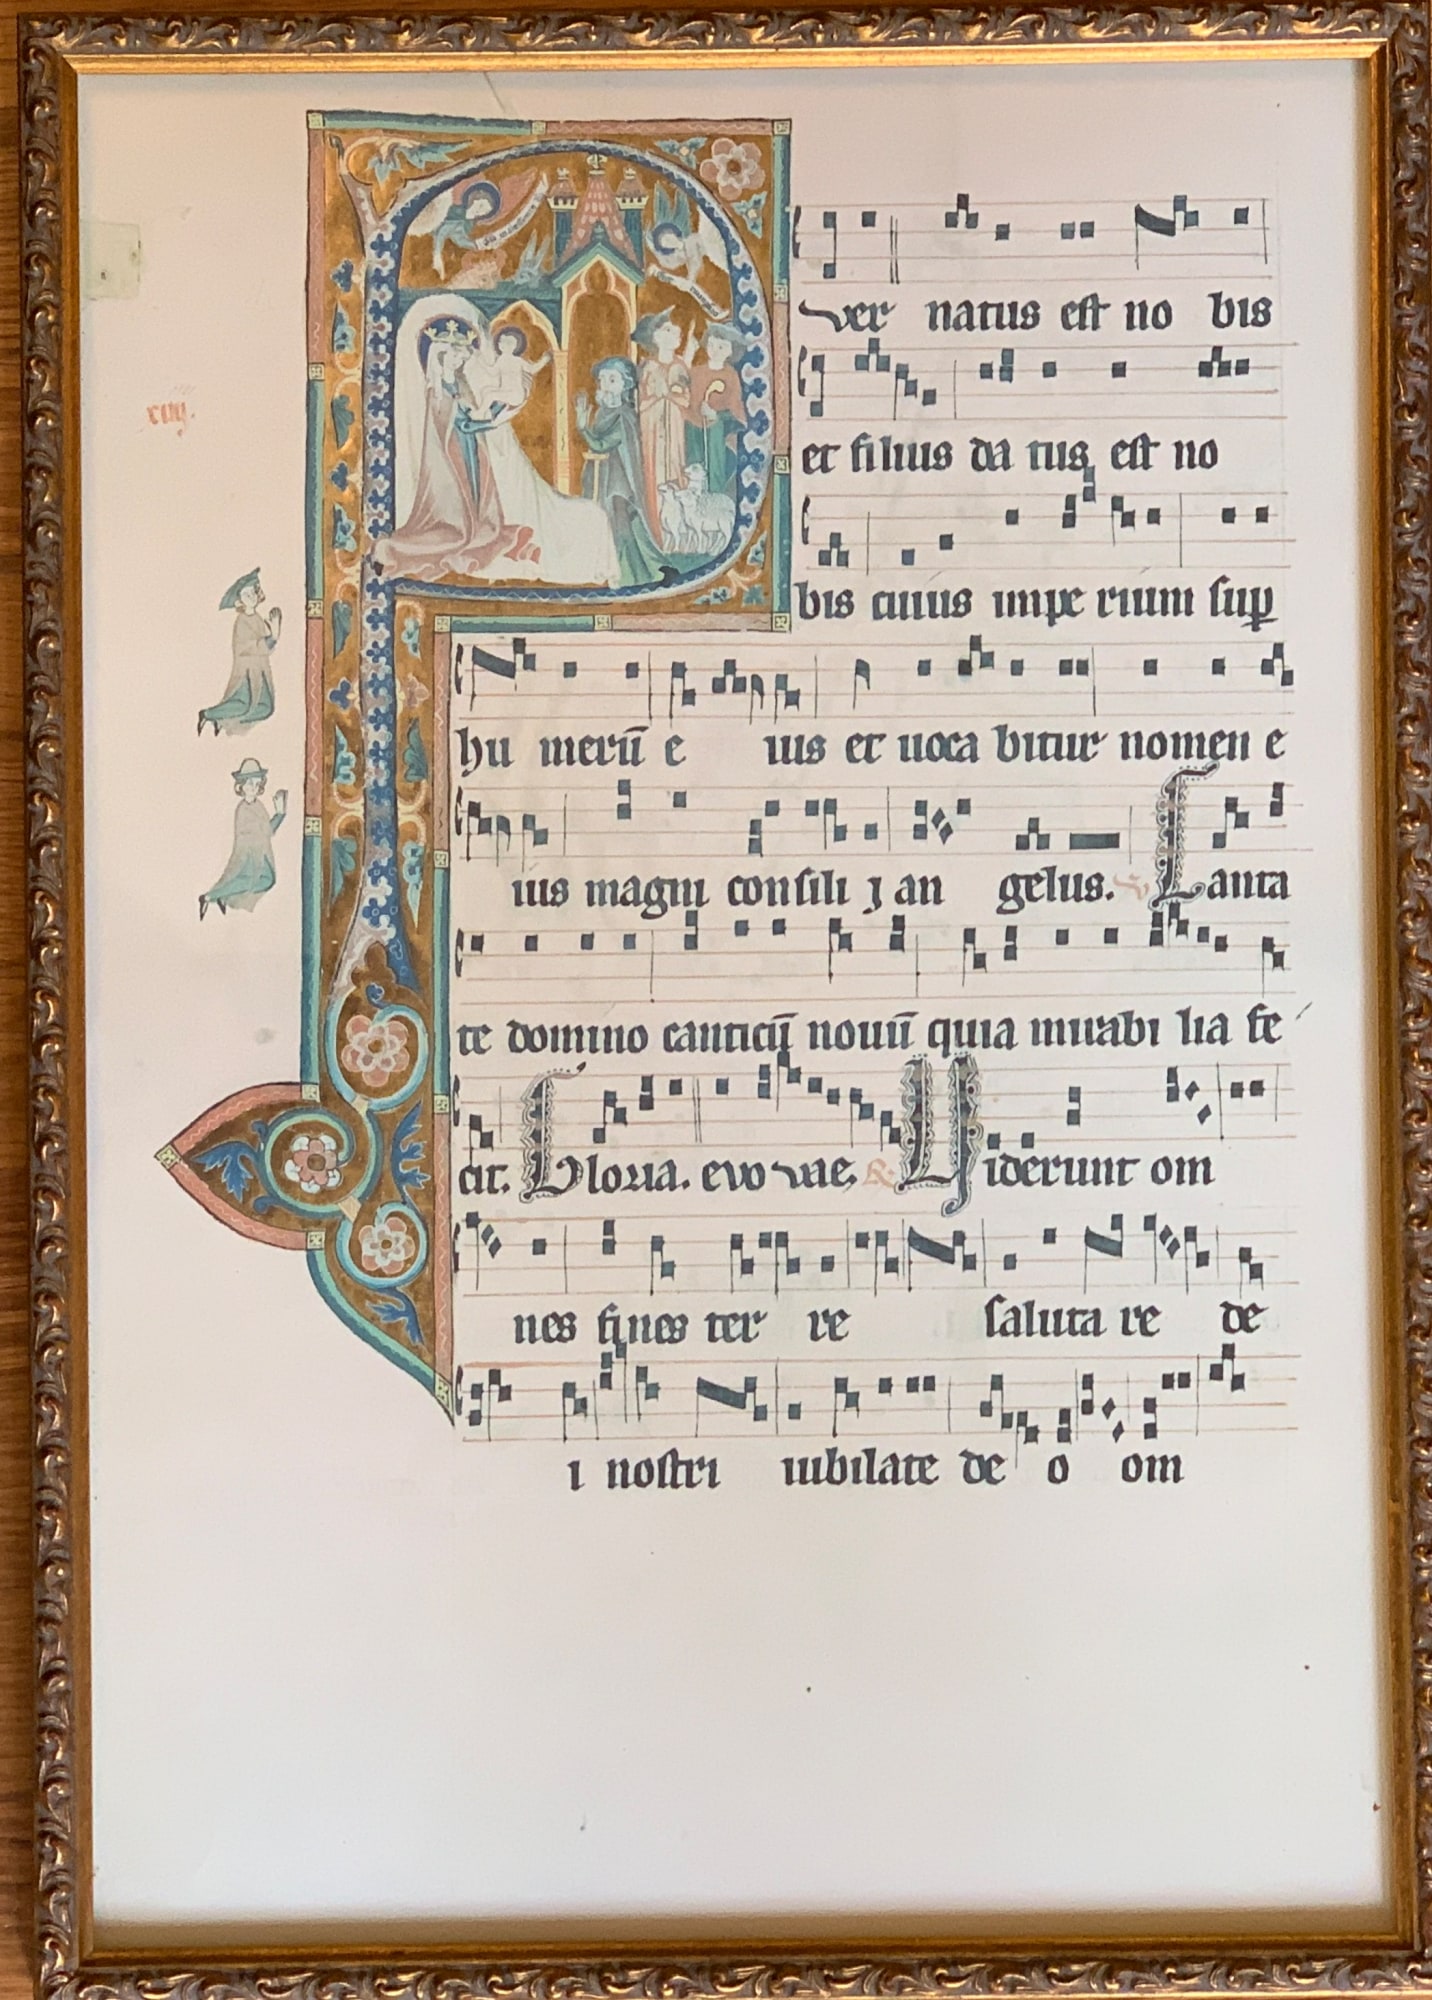 P
xiiij.
ver natus est no bis
et filius da tus est no
bis cuius impe rium sup̱
hu merū e ius et uoca bitur nomen e
ius magni consili j an gelus. V̕ Canta
te domino canticū nouū quia mirabi lia fe
cit. Gloria. evo vae. R̕ Viderunt om
nes fines ter re saluta re de
i nostri iubilate de o om